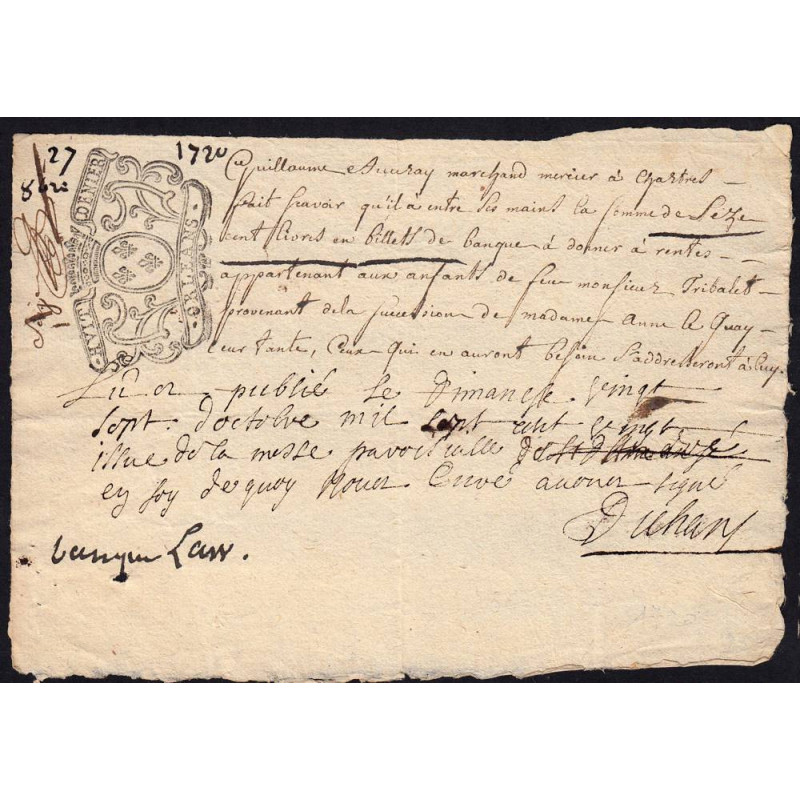 27
8bre
1720
HUIT DENIERS
ORLEANS
Guillaume Auuray marchand mercier à Chartres
fait scavoir qu'il à entre ses mains la somme de Seize
cent livres en billets de banque à donner à rentes
appartenant aux anfants de feu monsieur Tribalet
provenant dela succession de madame Anne le Quay
leur tante, Ceux qui en auront besoin s'addresseront à luy.
Lu et publié le Dimanche vingt
sept. doctobre mil sept cent vingt
issue de la messe paroissialle
en foy de quoy Nous Curé avons signé
banque Law.